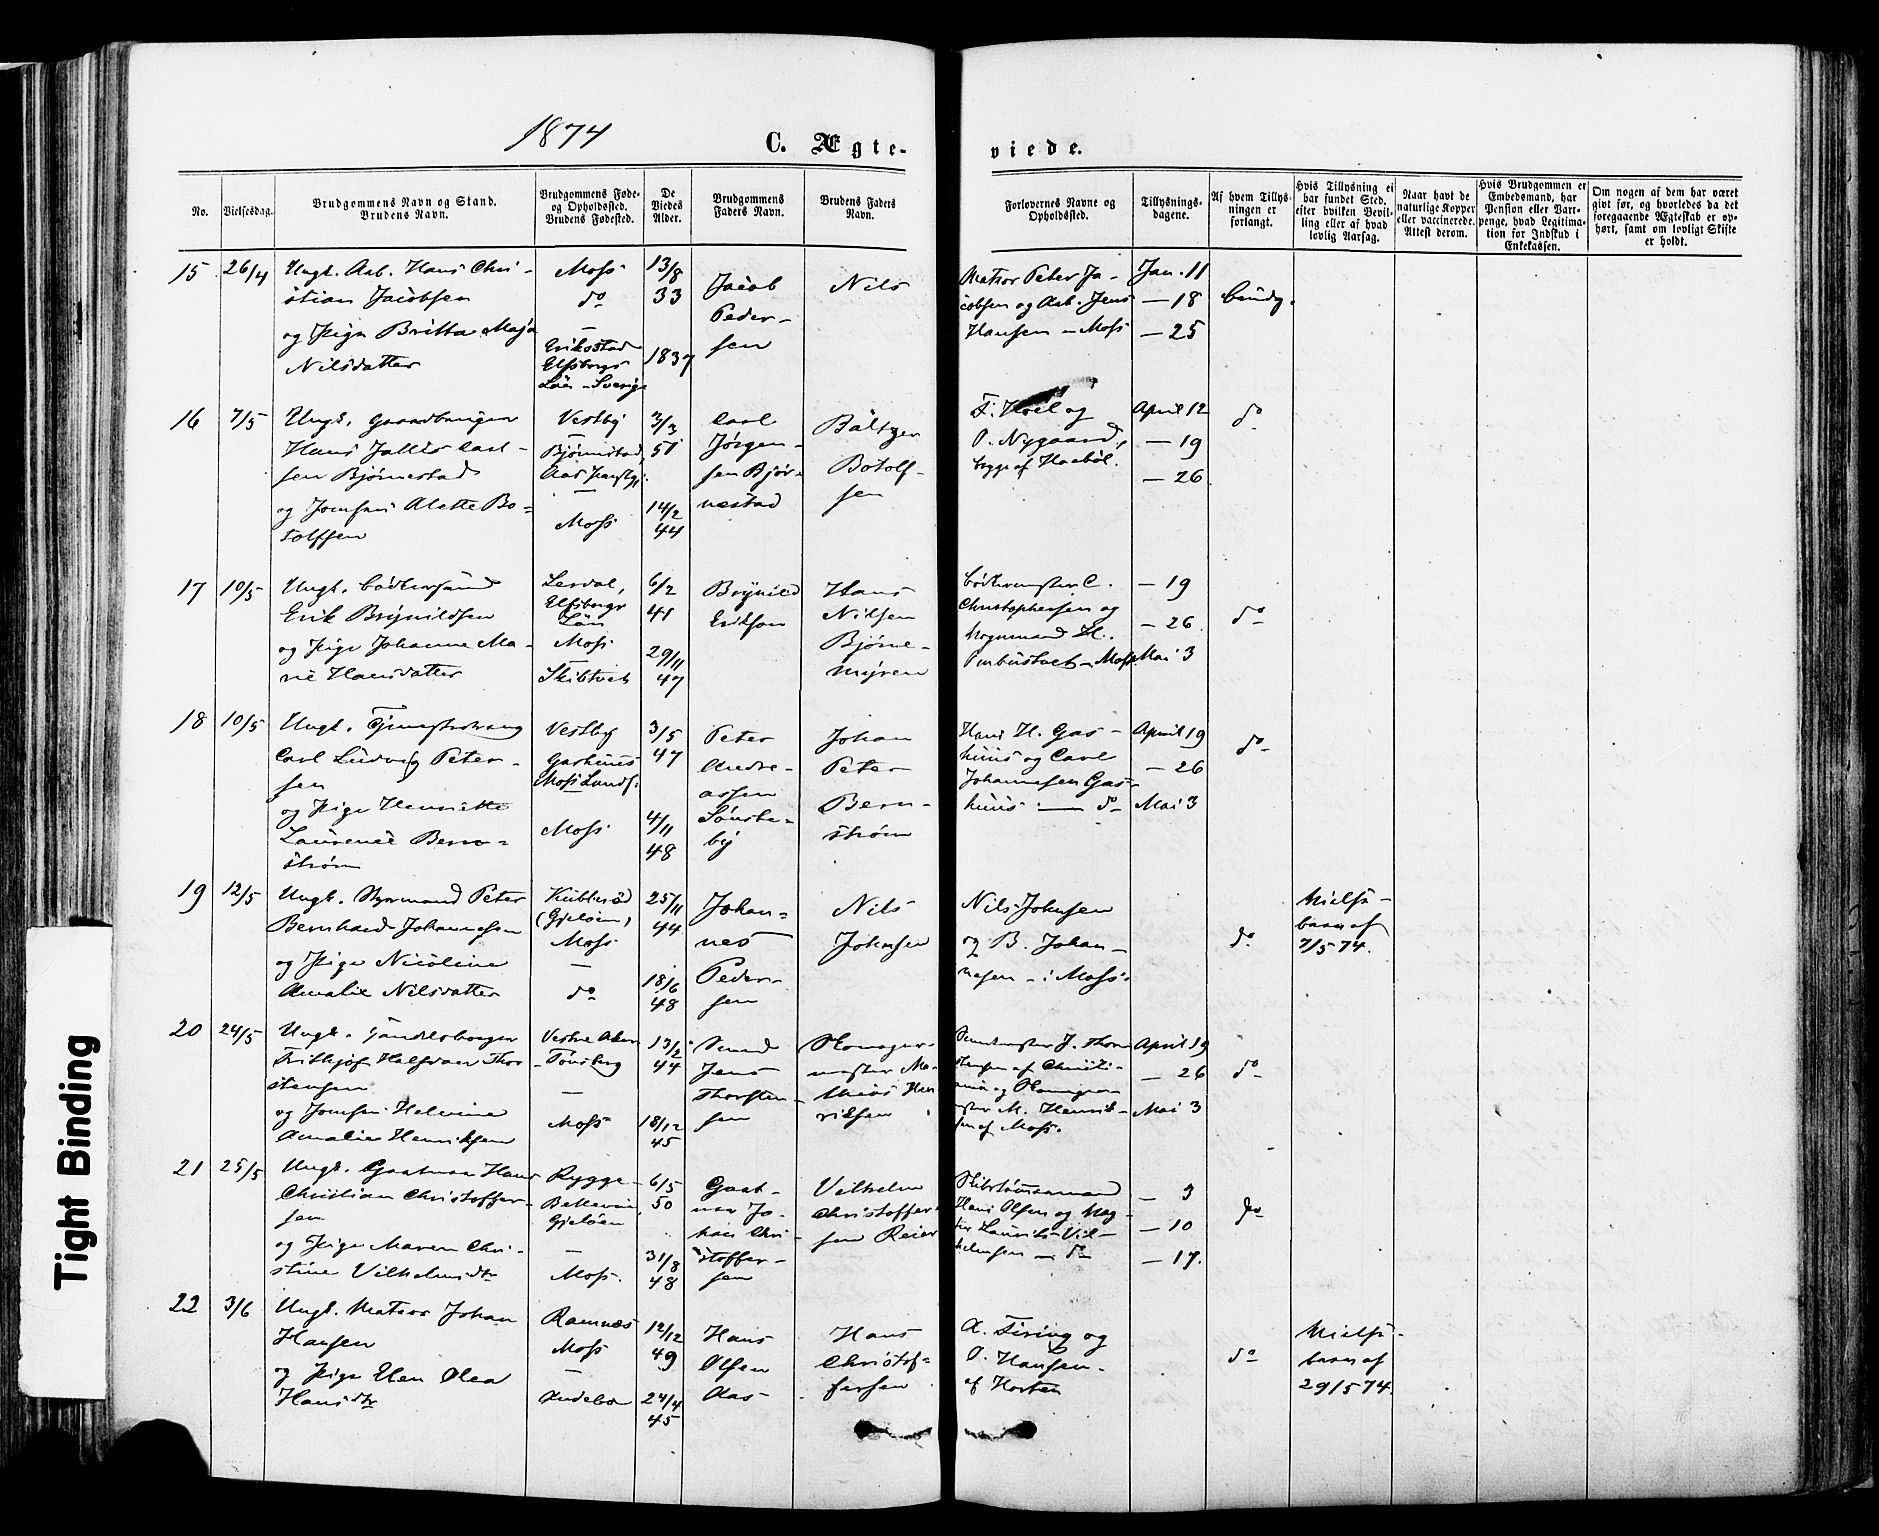 1874
C. Ægte-
viede.
No.
Vielsesdag.
Brudgommens Navn og Stand.
Brudens Navn.
Brudgommens Føde-
og Opholdssted.
Brudens Fødested.
De
Viedes
Alder.
Brudgommens
Faders Navn.
Brudens Faders
Navn.
Forlovernes Navne og
Opholdssted.
Tillysnings-
dagene.
Af hvem Tillys-
ningen er
forlangt.
Hvis Tillysning ei
har fundet Sted,
efter hvilken Bevil-
ling eller af hvad
lovlig Aarsag.
Naar havt de
naturlige Kopper
eller vaccinerede.
Attest derom.
Hvis Brudgommen er
Embedsmand, har
Pension eller Vart-
penge, hvad Legitima-
tion for Indskud i
Enkekassen.
Om nogen af dem har været
givt før, og hvorledes da det
foregaaende Ægteskab er op-
hørt, samt om lovligt Skifte
er holdt.
15
26/4
Ungk. Arb. Hans Chri-
stian Jacobsen
og Pige Britta Maja
Nilsdatter
Moss
do
Erikstad
Elfsborgs
Län - Sverige
13/8
33
1837
Jacob
Peder-
sen
Nils
Matros Peter Ja-
cobsen og Arb. Jens
Hansen - Moss
Jan. 11
- 18
- 25
Brudg.
16
7/5
Ungk. Gaardbruger
Hans Carl-
sen Bjørnestad
og Jomfru Alette Bo-
tolfsen
Vestby
Bjørnestad,
Aas Præstgj.
Moss
3/3
51
14/2
44
Carl
Jørgen-
sen Bjør-
nestad
Baltzer
Botolf-
sen
og
O. Nygaard,
begge af Haabøl.
April 12
- 19
- 26
do
17
10/5
Ungk. Bödkersvend
Erik Brynildsen
og Pige Johanne Ma-
rie Hansdatter
Lerdal,
Elfsborgs
Län
Moss
Skibtvet
6/2
41
29/11
47
Brynild
Erikson
Hans
Nilsen
Bjørne-
myren
Bödkermester C.
Christophersen og
Vognmand H.
- Moss
- 19
- 26
Mai 3
do
18
10/5
Ungk. Tjenestedreng
Carl Ludvig Peter-
sen
og Pige Henriette
Laurense Bern-
strøm
Vestby
Gashuus
Moss Lands:
Moss
3/5
47
4/11
48
Peter
Andre-
assen
Sønste-
by
Johan
Peter
Bern-
strøm
Hans H. Gas-
huus og Carl
Johannesen Gas-
huus - do
April 19
- 26
Mai 3
do
19
12/5
Ungk. Styrmand Peter
Bernhard Johannessen
og Pige Nicoline
Amalie Nilsdatter
Kubberød
(Gjeløen)
Moss
do
25/11
44
18/6
48
Johan-
nes
Peder-
sen
Nils
Johnsen
Nils Johnsen
og B. Johan-
nesen - i Moss
do
af
7/5 74.
20
24/5
Ungk. Handelsborger
Frithjof Halfdan Thor-
stensen
og Jomfru Helvine
Amalie Henriksen
Vestre Aker
- Tønsberg
Moss
13/2
44
18/12
45
Jens
Thorsten-
sen
mester Ma-
thias Hen-
riksen
J. Thor-
stensen af Christi-
ania og
M. Henrik-
sen af Moss.
April 19
- 26
Mai 3
do
21
25/5
Ungk. Gaatman Hans
Christian Christoffer-
sen
og Pige Maren Chri-
stine Vilhelmsdtr
Rygge
Bellevue,
Gjeløen
Moss.
6/5
50
31/8
48
Gaat-
man Jo-
han Chri-
stoffer-
sen
Vilhelm
Christoffer-
sen Reier
Skibstømmermand
Hans Olsen og
Laurits Vil-
helmsen - do
- 3
- 10
- 17.
do
22
3/6
Ungk. Matros Johan
Hansen
og Pige Elen Olea
Hansdtr
Ramnæs
Moss
Andebo
12/12
49
24/4
45
Hans
Olsen
Aas
Hans
Christof-
fersen
A. Firing og
O. Hansen
af Horten
do
af
29/5 74.
Tight Binding